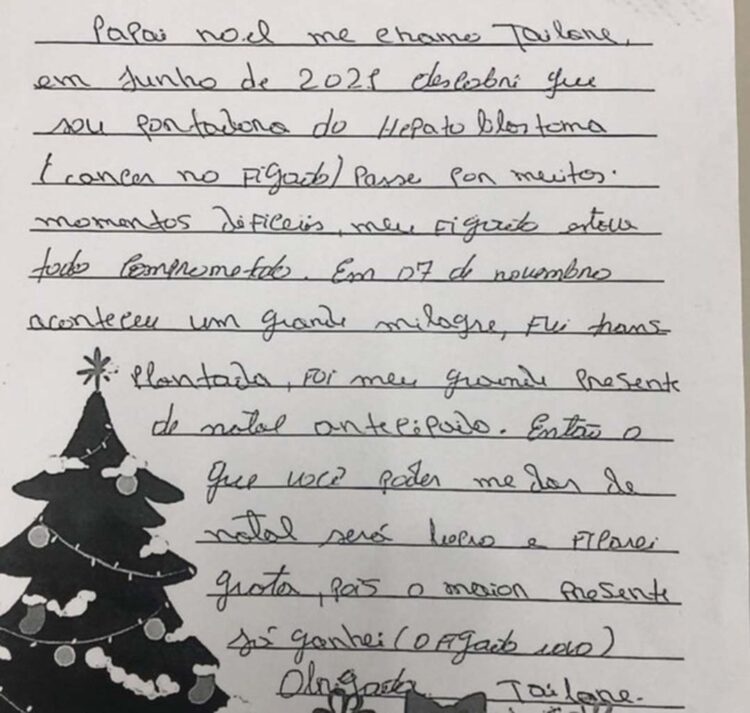 Papai noel me chamo Tailane,
em Junho de 2021 descobri que
sou portadora do Hepato blastoma
(cancer no Figado) Passe por muitos
momentos dificeis, meu Figado estava
todo comprometido. Em 07 de novembro
aconteceu um grande milagre, Fui trans
Plantada, Foi meu grande Presente
de natal antecipado. Então o
que você poder me dar de
natal será lucro e Ficarei
grata, pois o maior Presente
já ganhei (o Figado novo)
Obrigada Tailane.